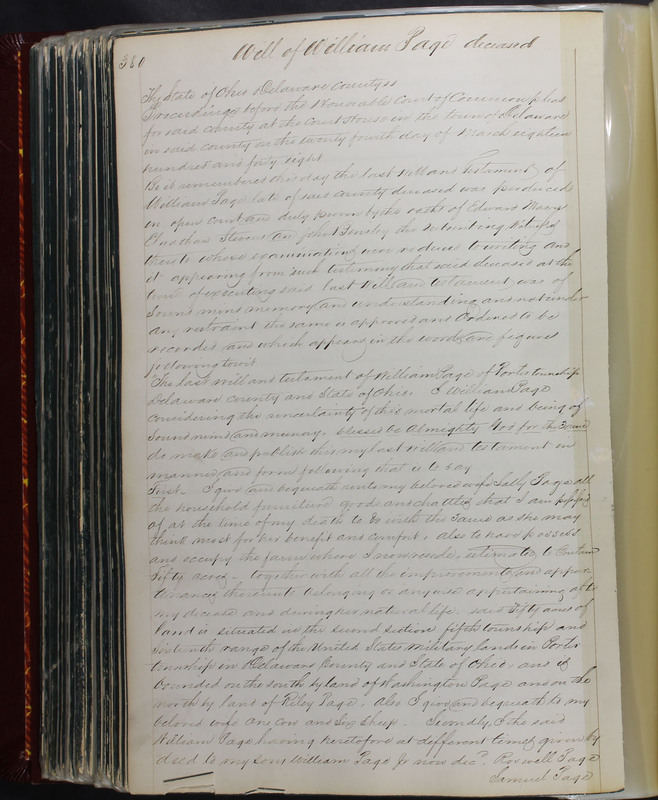 380
Will of William Page deceased
The State of Ohio Delaware County ss
Proceedings before the Honorable Court of Common pleas
for said county at the Court House in the town of Delaware
in said County on the twenty fourth day of March eighteen
hundred and forty eight
Be it remembered this day the last Will and Testament of
William Page late of said county deceased was produced
in open Court and duly proven by the oaths of Edward Mason
Stevens and John the subscribing Witnesses
thereto whose examination were reduced to writing and
it appearing from such testimony that said deceased at the
time of executing said last Will and testament, was of
sound mind memory and understanding and not under
any restraint the same is approved and Ordered to be
recorded and which appears in the words and figures
following towit
The last will and testament of William Page of Porter township
Delaware County and State of Ohio. I William Page
considering the uncertainty of this mortal life and being of
sound mind and memory. blessed be Almighty God for the Same
do make and publish this my last will and testament in
manner and form following that is to say
First. I give and bequeath unto my beloved wife Sally Page all
the household furniture goods and chattles that I am possessed
of at the time of my death to do with the same as she may
think most for her benefit and comfort, also to have possess
and occupy the farm where I now reside, estimated to Contain
Fifty acres - together with all the improvements and appur
tenances thereunto belonging or any wise appertaining after
my decease and during her natural life. said Fifty acres of
land is situated in the second section fifth township and
Sixteenth range of the United States Military lands in Porter
township in Delaware County and State of Ohio and is
bounded on the south by land of Washington Page and on the
north by land of Riley Page. Also I give and bequeath to my
beloved wife One Cow and Six Sheep - Secondly I the said
William Page having heretofore at different times given by
deed to my sons William Page Jr now decd. Roswell Page
Samuel Page